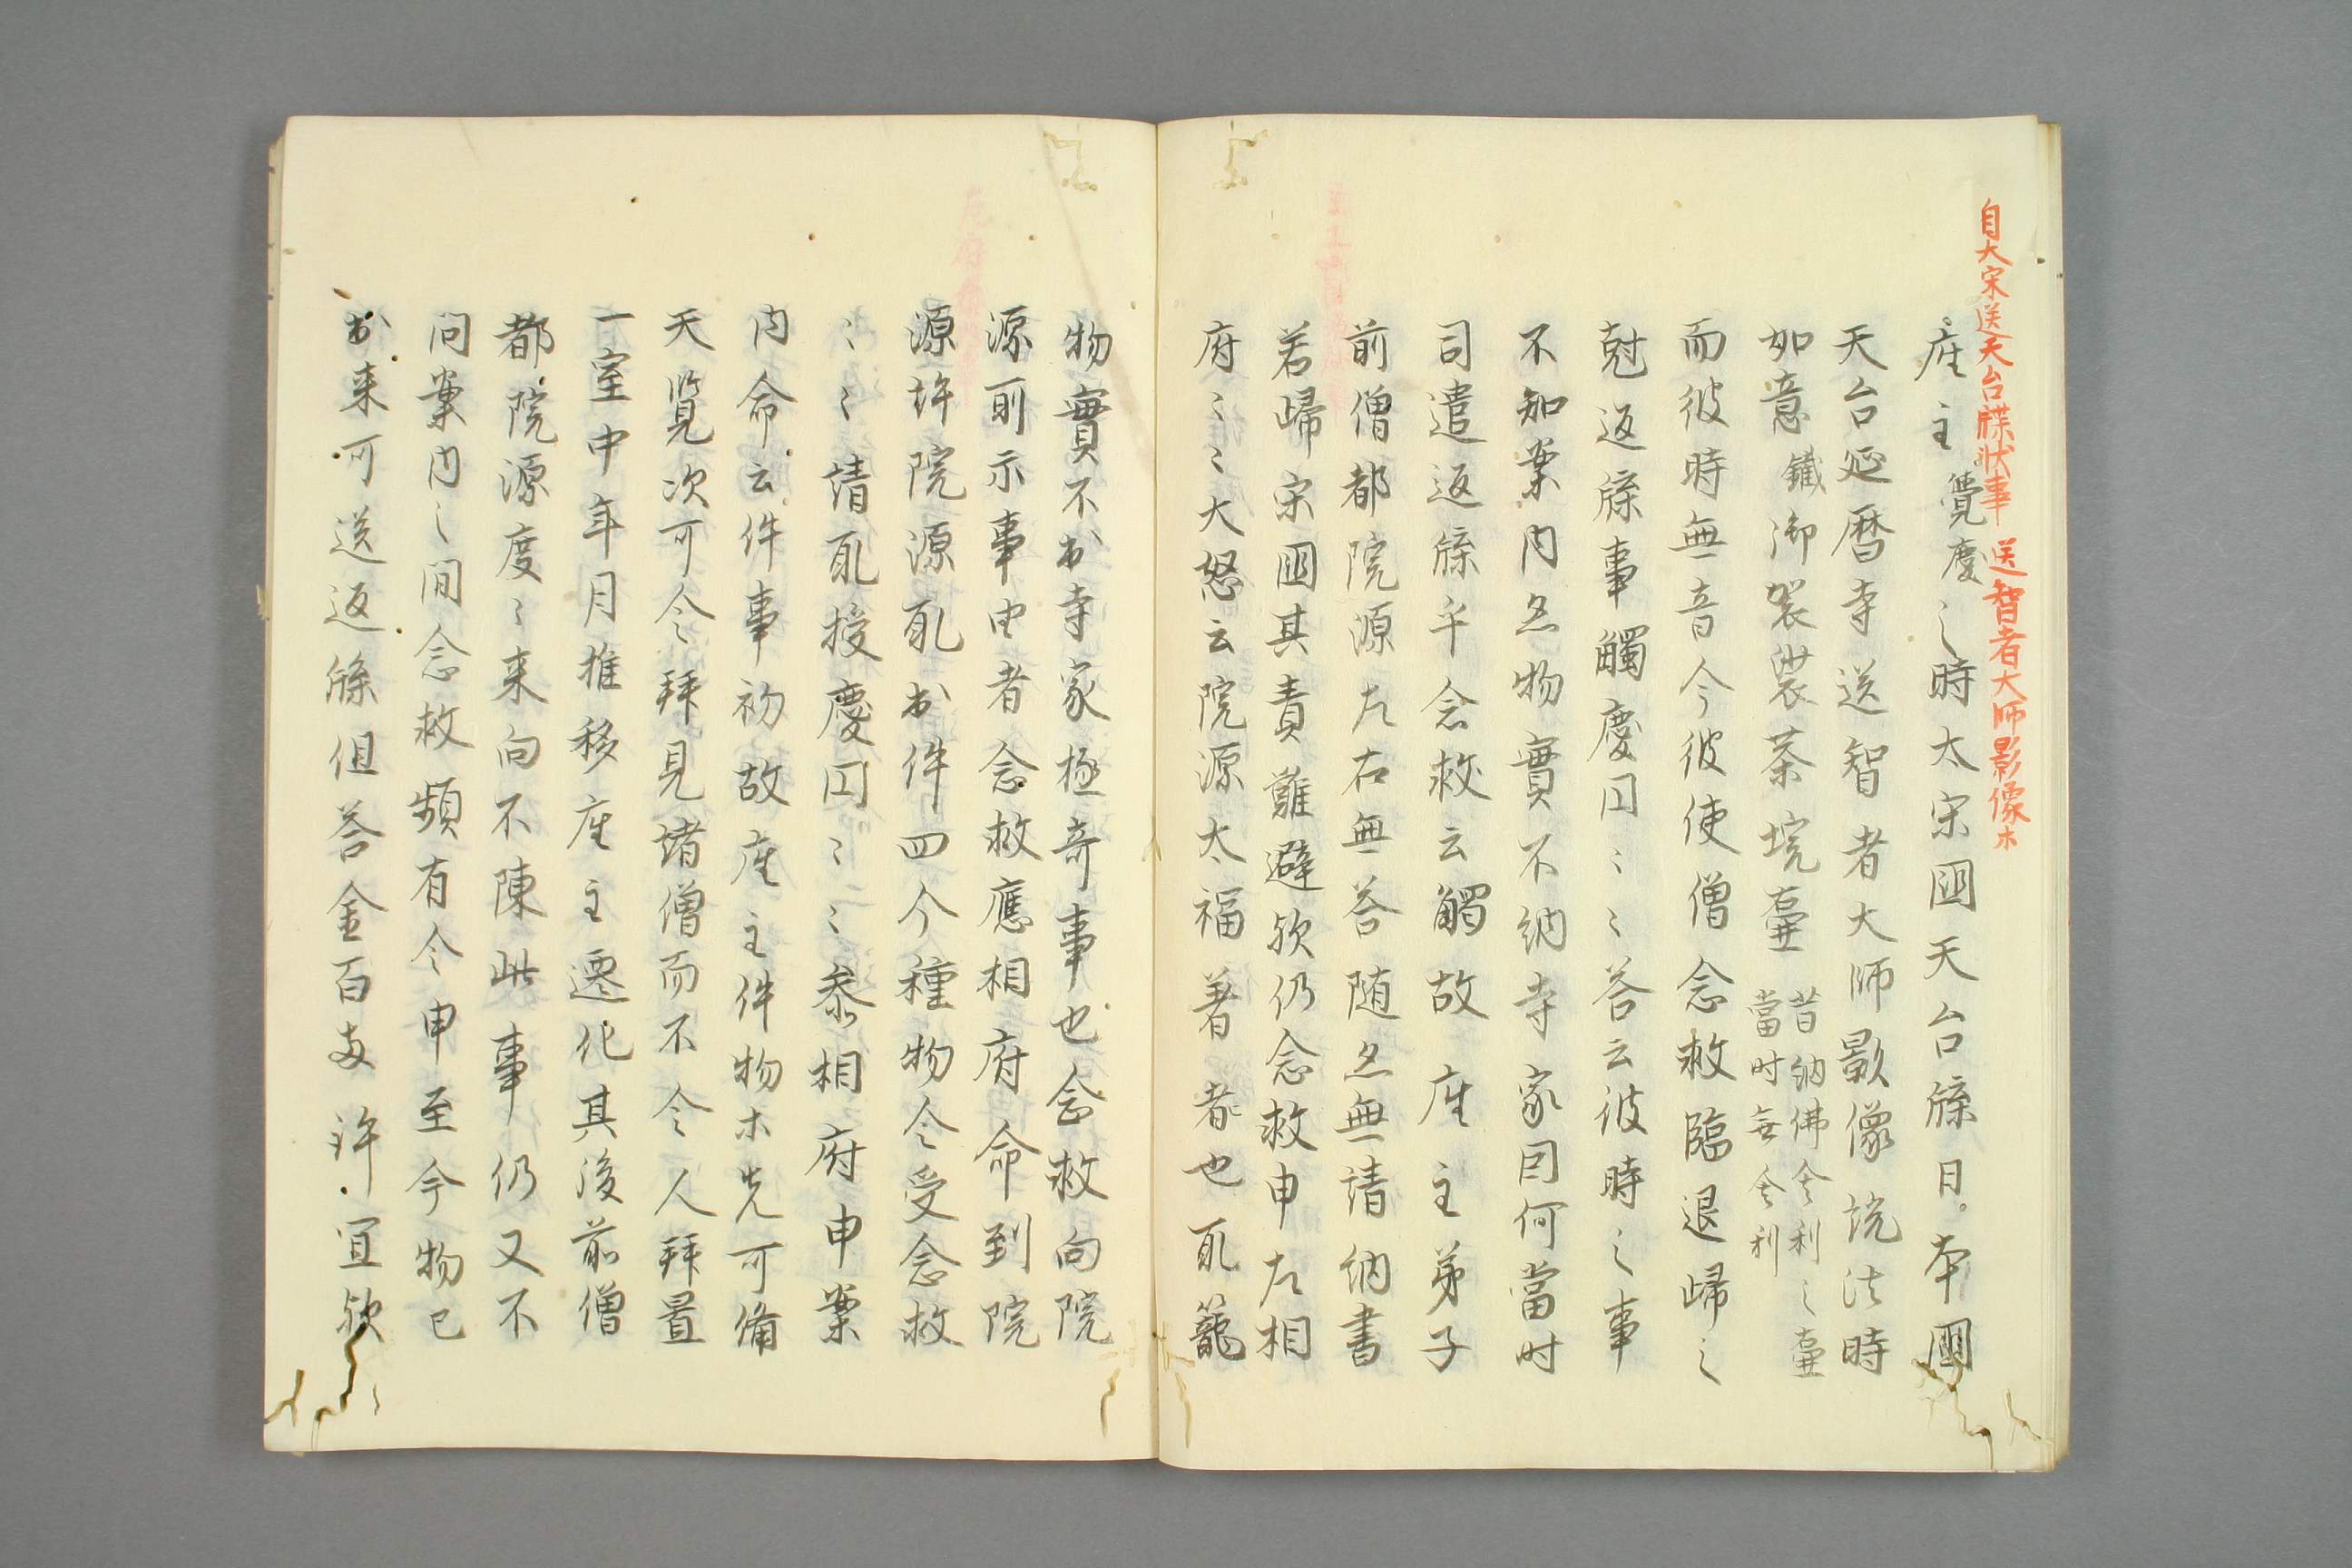 自大宋送天台牒状事 送智者大師影像木
座主覺慶之時太宋國天台牒日本國
天台延暦寺送智者大師影像説法時
如意鐵御袈裟茶垸壺昔納佛舎利之壺當时無舎利
而彼時無音今彼使僧念救臨退歸之
尅返牒事觸慶円〻〻答云彼時之事
不知案内又物實不納寺家因何當时
司遣返牒乎念救云觸故座主弟子
前僧都院源左右無答随又無請納書
若歸宋國其責難避欤仍念救申左相
府〻〻大怒云院源太福著者也乱籠
物實不出寺家極奇事也念救向院
源前示事由者念救應相府命到院
源許院源乱出件四个種物令受念救
〻〻請乱授慶円〻〻参相府申案
内命云件事初故座主件物木先可備
天覧次可令拜見諸僧而不令人拜置
一室中年月推移座主遷化其後前僧
都院源度〻来向不陳此事仍又不
問案内之間念救頻有令申至今物已
出来可送返牒但答金百両許宜欤